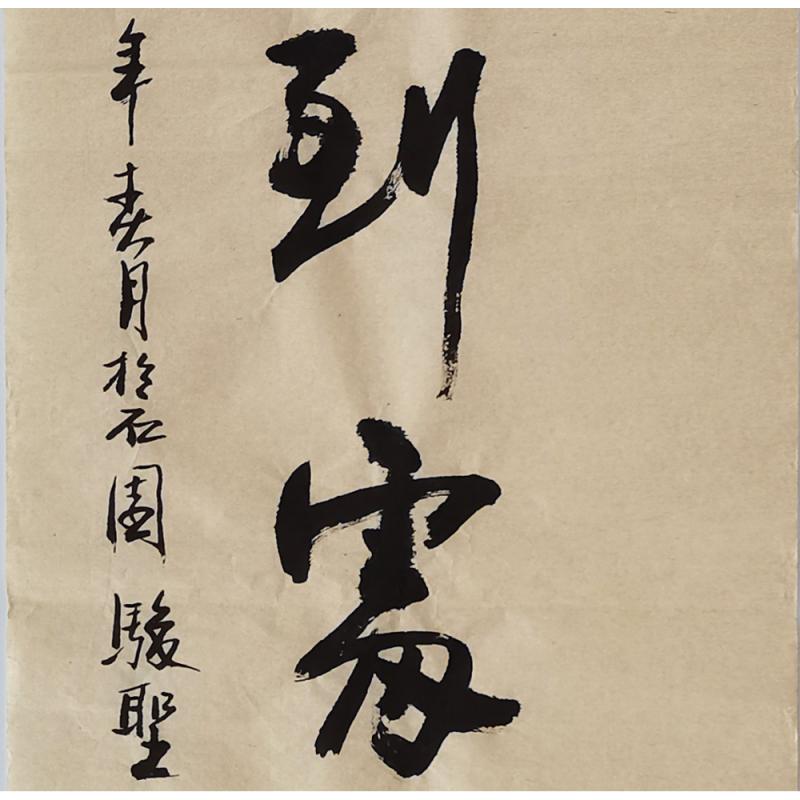 到處
年春月於石園 駿聖